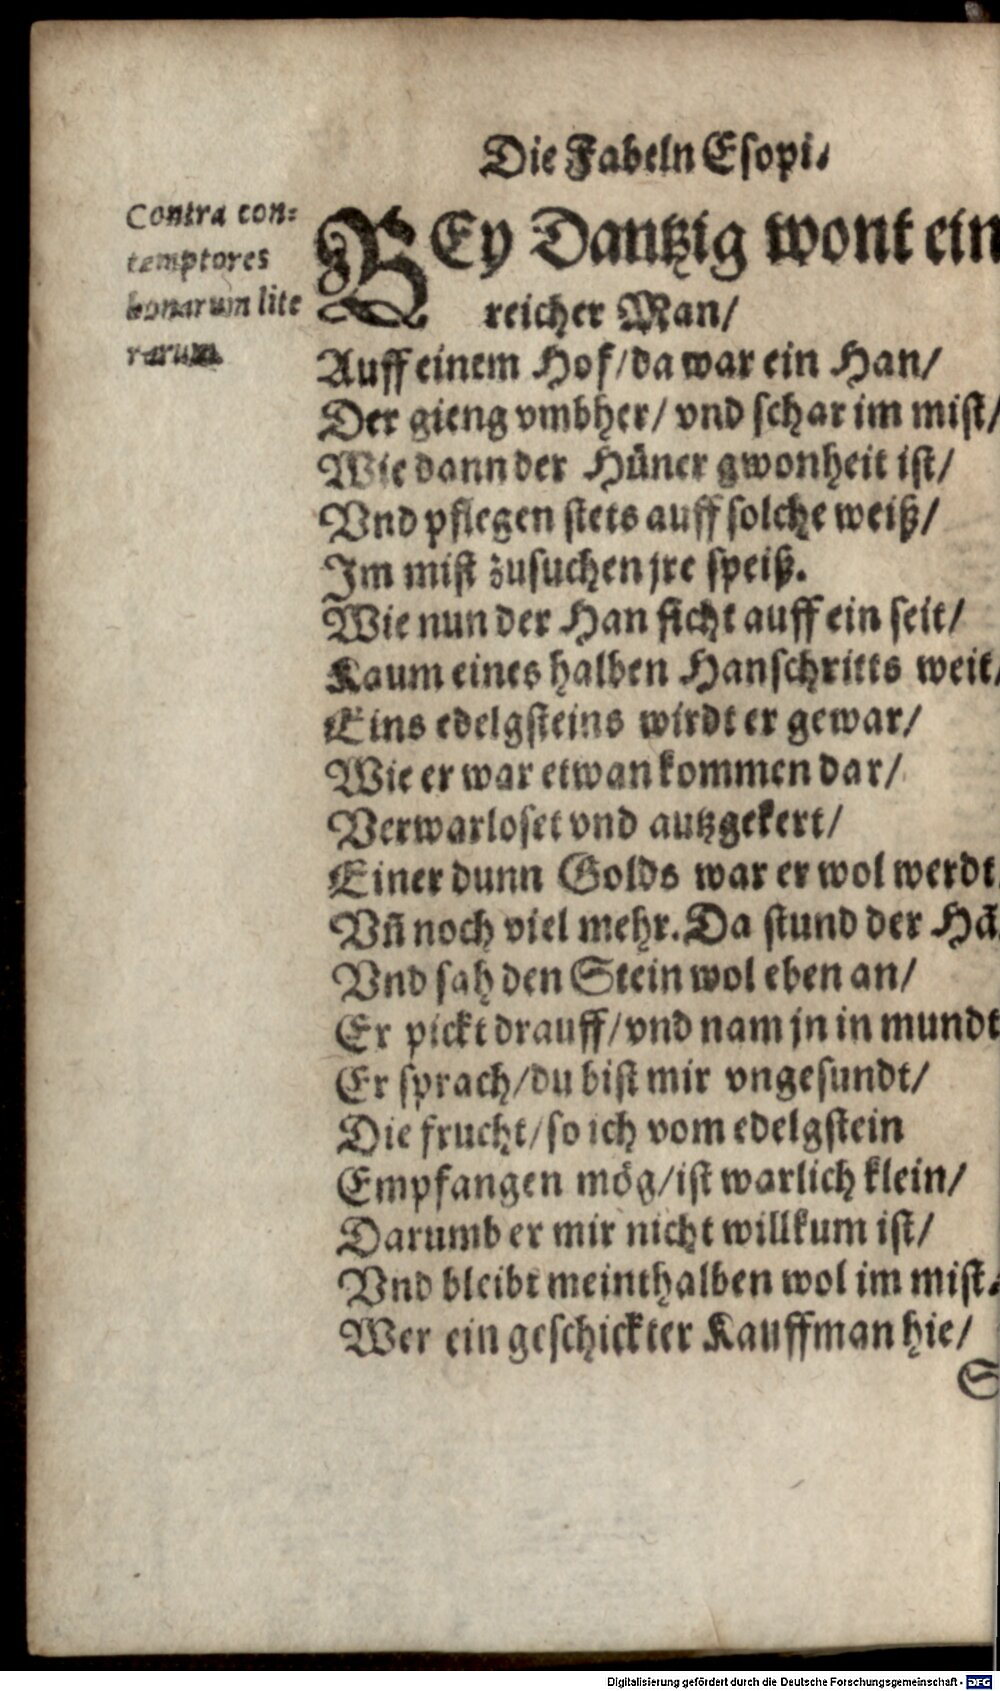 Die Fabeln Esopi.
Contra con-
temptores
bonarum lite
rarum
BEy Dantzig wont ein
reicher Man/
Auff einem Hof/da war ein Han/
Der gieng vmbher/ vnd schar im mist/
Wie dann der Hüner gwonheit ist/
Vnd pflegen stets auff solche weiß/
Im mist zusuchen jre speiß.
Wie nun der Han sicht auff ein seit/
Kaum eines halben Hanschritts weit/
Eins edelgsteins wirdt er gewar/
Wie er war etwan kommen dar/
Verwarloset vnd autzgekert/
Einer dunn Golds war er wol werdt
Vñ noch viel mehr. Da stund der Hã
Vnd sah den Stein wol eben an/
Er pickt drauff/vnd nam jn in mundt
Er sprach/du bist mir vngesundt/
Die frucht/so ich vom edelgstein
Empfangen mög/ist warlich klein/
Darumb er mir nicht willkum ist/
Vnd bleibt meinthalben wol im mist.
Wer ein geschickter Kauffman hie/
S
Digitalisierung gefördert durch die Deutsche Forschungsgemeinschaft - DFG